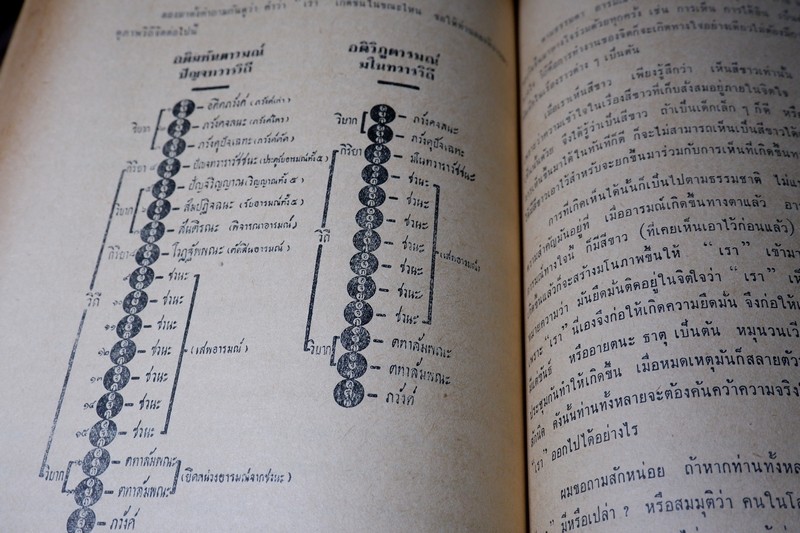 ลองมาตั้งคำถามกันดูว่า คำว่า “เรา” เกิดขึ้นในขณะไหน
ดูภาพวิถีจิตต่อไปนี้
อติมหันตารมณ์
ปัญจทวารวิถี
อดีตภวังค์ (ภวังค์เก่า)
ภวังคจลนะ (ภวังค์ไหว)
ภวังคุปัจเฉทะ (ภวังค์ตัด)
วิบาก
กิริยา
ปัญจทวาราวัชชนะ (ประตูรับอารมณ์ทั้ง ๕)
ปัญจวิญญาณ (วิญญาณทั้ง ๕)
สัมปฏิจฉนะ (รับอารมณ์ทั้ง ๕)
สันตีรณะ (พิจารณาอารมณ์)
วิบาก
กิริยา
โวฏฐัพพนะ (ตัดสินอารมณ์)
วิถี
ชวนะ
๑๐ ชวนะ
๑๑ ชวนะ
๑๒ ชวนะ
(เสพอารมณ์)
๑๓ ชวนะ
๑๔ ชวนะ
๑๕ ชวนะ
ตทาลัมพณะ
วิบาก
(ยึดหน่วงอารมณ์จากชวนะ)
ตทาลัมพณะ
ภวังค์
อติวิภูตารมณ์
มโนทวารวิถี
ภวังคจลนะ
วิบาก
ภวังคุปัจเฉทะ
กิริยา
มโนทวาราวัชชนะ
ชวนะ
ชวนะ
ชวนะ
วิถี
ชวนะ
(เสพอารมณ์)
ชวนะ
ชวนะ
ชวนะ
ตทาลัมพณะ
วิบาก
ตทาลัมพณะ
ภวังค์
ทางใจร่วมด้วยทุกครั้ง เช่น การเห็น การได้ยิน
คือการทำงานของจิตก็จะเกิดทางใจอย่างเดียวไม่ต้องมี
เรื่องราวต่าง ๆ เป็นต้น
เมื่อเราเห็นสีขาว เพียงรู้สึกว่า เห็นสีขาวเท่านั้น
ความเข้าใจในเรื่องสีขาวที่เก็บสั่งสมอยู่ภายในจิตใจ
ด้วย จึงได้รู้ว่าเป็นสีขาว ถ้าเป็นเด็กเล็ก ๆ ก็ดี หรือ
มาได้ในทันทีก็ดี ก็จะไม่สามารถเห็นเป็นสีขาวได้
มีสีขาวเอาไว้สำหรับจะยกขึ้นมาร่วมกับการเห็นที่เกิดขึ้น
การที่เกิดเห็นได้นั้นก็เป็นไปตามธรรมชาติ
ความสำคัญมันอยู่ที่ เมื่ออารมณ์เกิดขึ้นทางตาแล้ว
ทางใจนี้ ก็มีสีขาว (ที่เคยเห็นเอาไว้ก่อนแล้ว)
เกิดขึ้นแล้วก็จะสร้างมโนภาพขึ้นให้ “เรา” เข้ามา
หมายความว่า มันยึดมั่นติดอยู่ในจิตใจว่า “เรา”
เพราะ “เรา” นี่เองจึงก่อให้เกิดความยึดมั่น จึงก่อให้
มีแต่ขันธ์ หรืออายตนะ ธาตุ เป็นต้น หมุนวน
ประชุมกันทำให้เกิดขึ้น เมื่อหมดเหตุมันก็สลายตัว
ดังนั้นท่านทั้งหลายจะต้องค้นคว้าความจริง
“เรา” ออกไปได้อย่างไร
ผมขอถามสักหน่อย ถ้าหากท่านทั้ง
มีหรือเปล่า ? หรือสมมุติว่า คนใน